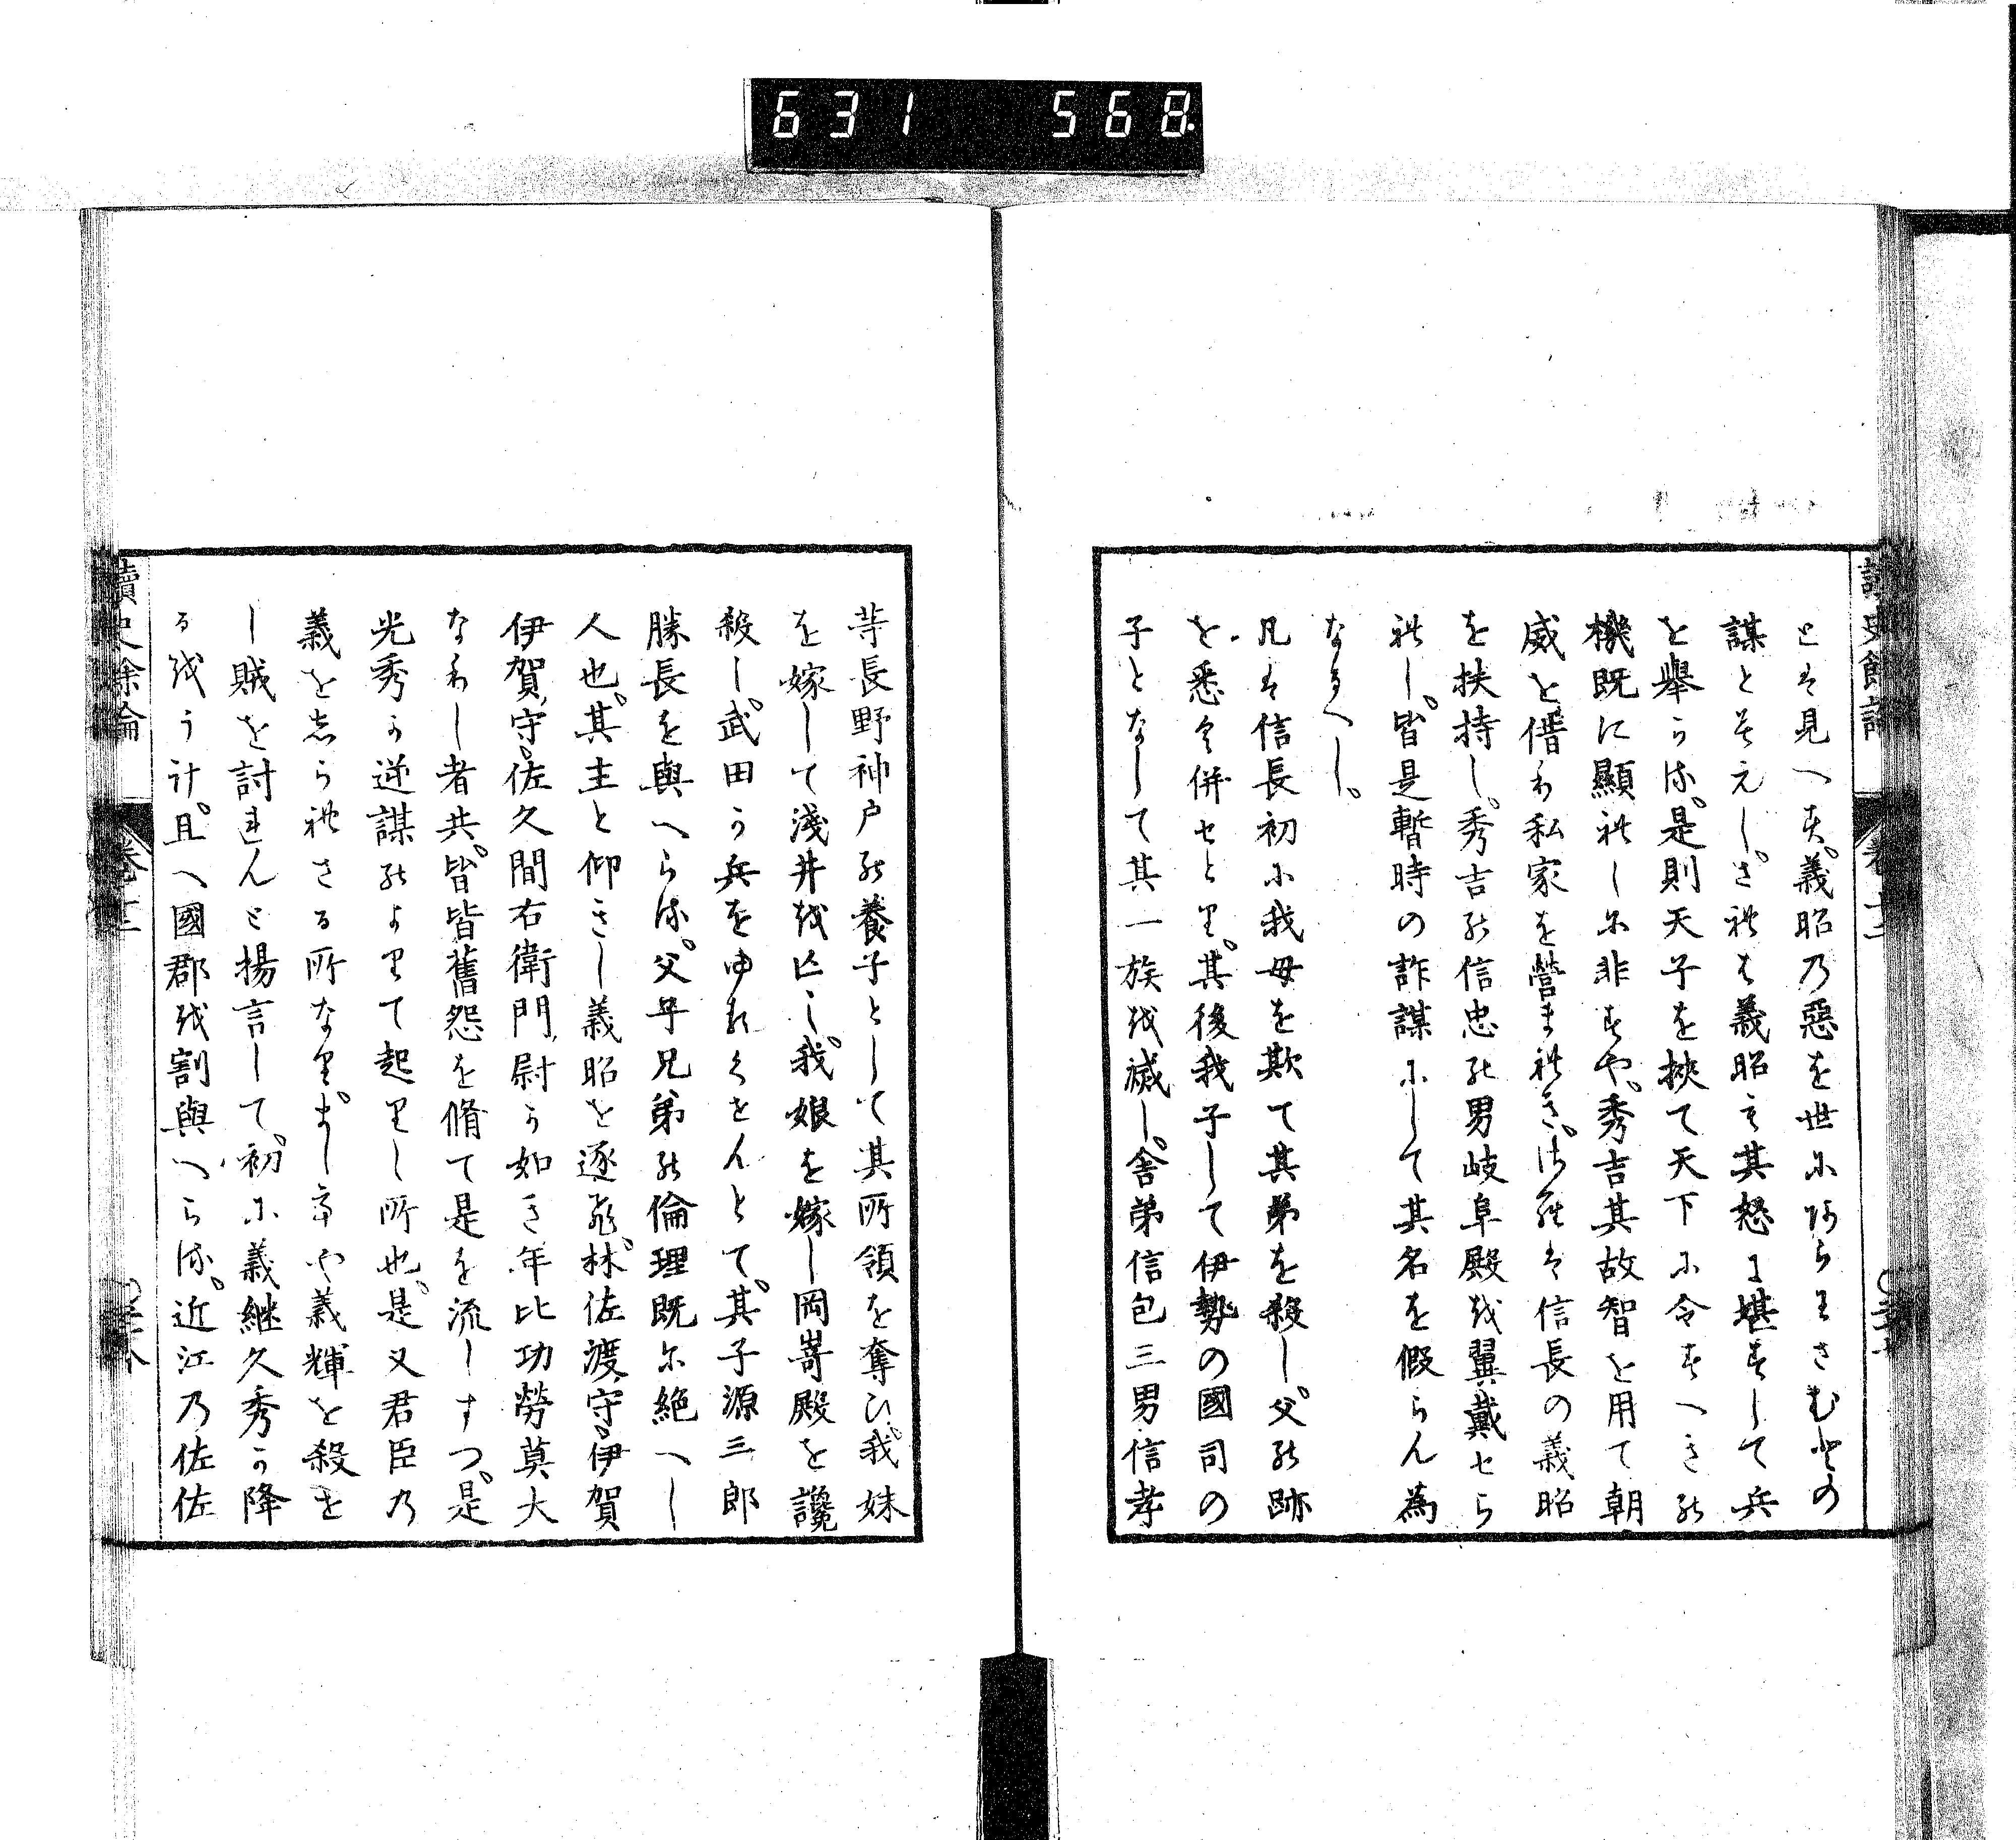 631 568.
讀史餘論 卷十二
とは見へす。義昭乃惡を世にあらはさむ也の
謀とそ見えし。されは義昭も其怒に堪すして兵
を擧らる。是則天子を挾て天下に令すへきの
機既に顯れしに非すや。秀吉其故智を用て朝
威を借り私家を營まれき。されは信長の義昭
を扶持し。秀吉の信忠の男岐阜殿を翼戴せら
れし。皆是暫時の詐謀にして其名を假らん爲
なるへし。
凡は信長初に我母を欺て其弟を殺し。父の跡
を悉く併せとり。其後我子して伊勢の國司の
子となして其一族を滅し。舍弟信包三男信孝
等長野神戸の養子として其所領を奪ひ。我妹
を嫁して淺井を亡し。我娘を嫁し岡嵜殿を讒
殺し。武田か兵を申れくをんとて。其子源三郎
勝長を與へらる。父子兄弟の倫理既に絶へし
人也。其主と仰きし義昭を逐ひ。林佐渡守。伊賀
伊賀守。佐久間右衛門尉か如き年比功勞莫大
なりし者共。皆皆舊怨を脩て是を流しすつ。是
光秀か逆謀のよりて起りし所也。是又君臣乃
義をしらさる所なり。まし幸や義輝を殺せ
し賊を討れんと揚言して。初に義継久秀か降
るをうけ。且へ國郡を割與へらる。近江乃佐佐
讀史餘論 卷十二